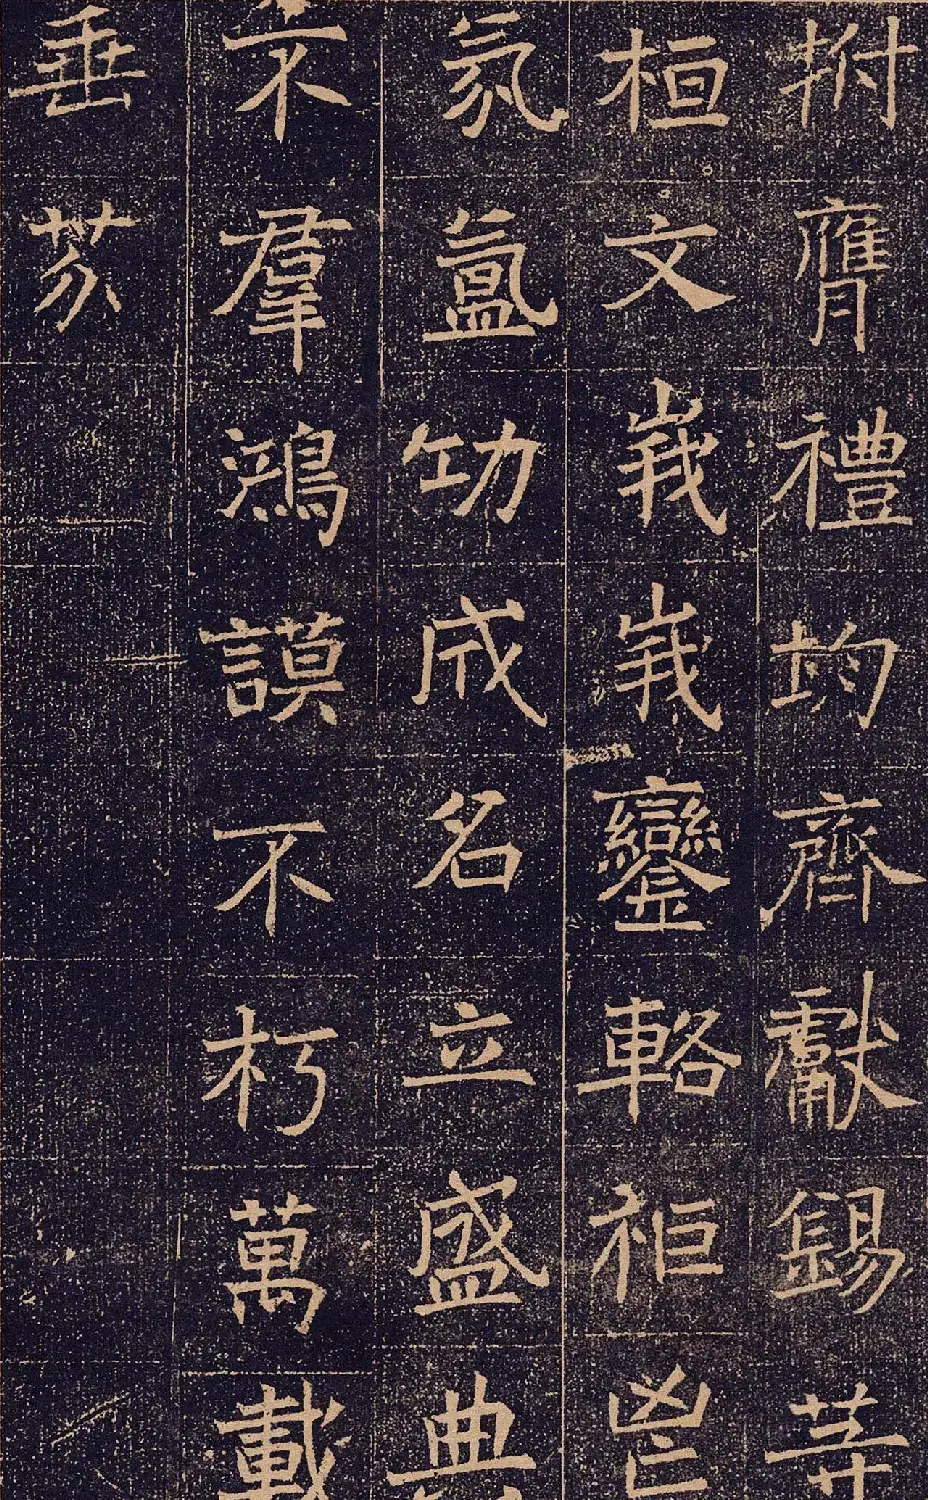 拊膺禮均齊獻錫等
桓文峩峩鑾輅秬鬯
氛氳功成名立盛典
不羣鴻謨不朽萬載
垂芬